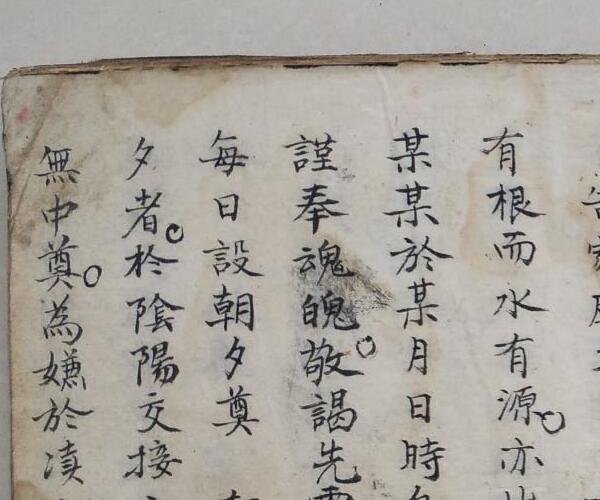 有根而水有源亦
某某於某月日時
謹奉魂魄敬謁先
每日設朝夕奠
夕者於陰陽交接
無中奠為嫌於瀆